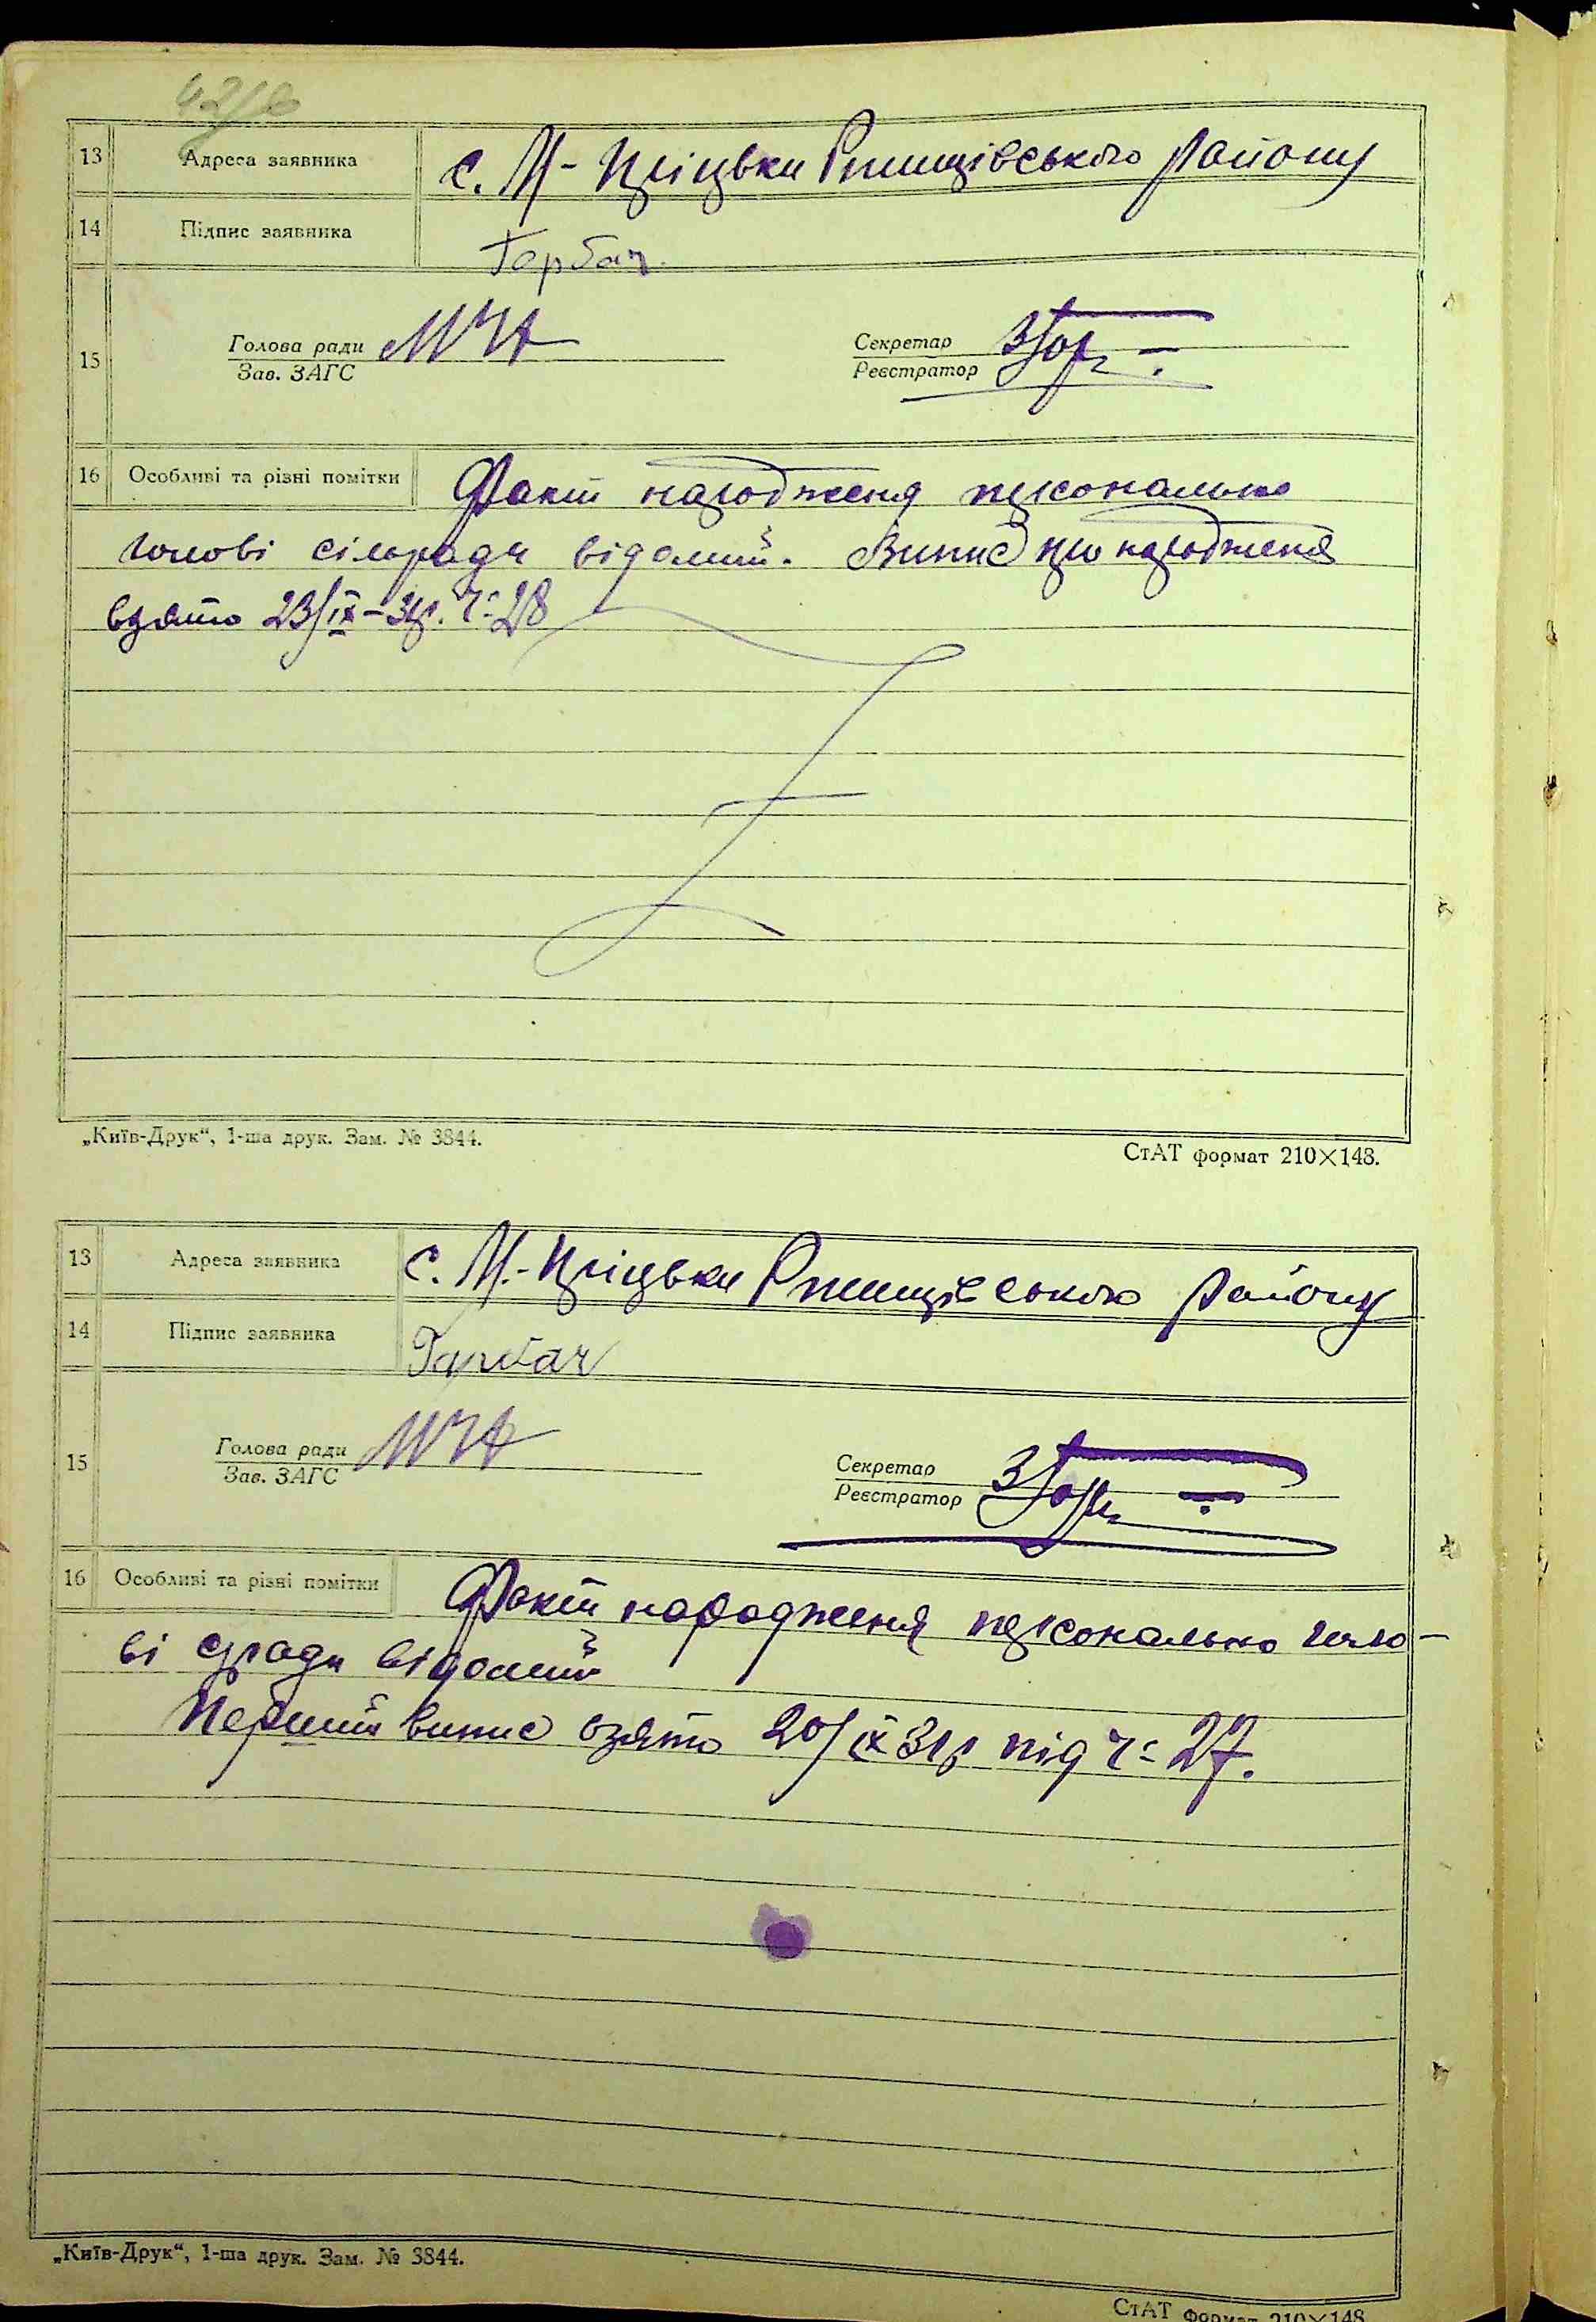 13 Адреса заявника с. М-Прицьки Ржищівського району
14 Підпис заявника Горбач.
15 Голова ради Секретар
Зав. ЗАГС Реєстратор
16 Особливі та різні помітки Факт народженя персонально
голові сільради відомий. Випис про народженя
взято 23/ІХ-31р. Ч= 28
„Київ-Друк“, 1-ша друк. Зам. № 3844.
СтАТ формат 210×148.
13 Адреса заявника с. М.-Прицьки Ржищівського району
14 Підпис заявника Горбач
15 Голова ради Секретар
Зав. ЗАГС Реєстратор
16 Особливі та різні помітки Факт народженя персонально голо-
ві сради відомий
Перший випис взято 20/ІХ 31р під Ч= 27.
„Київ-Друк“, 1-ша друк. Зам. № 3844.
СтАТ формат 210×148